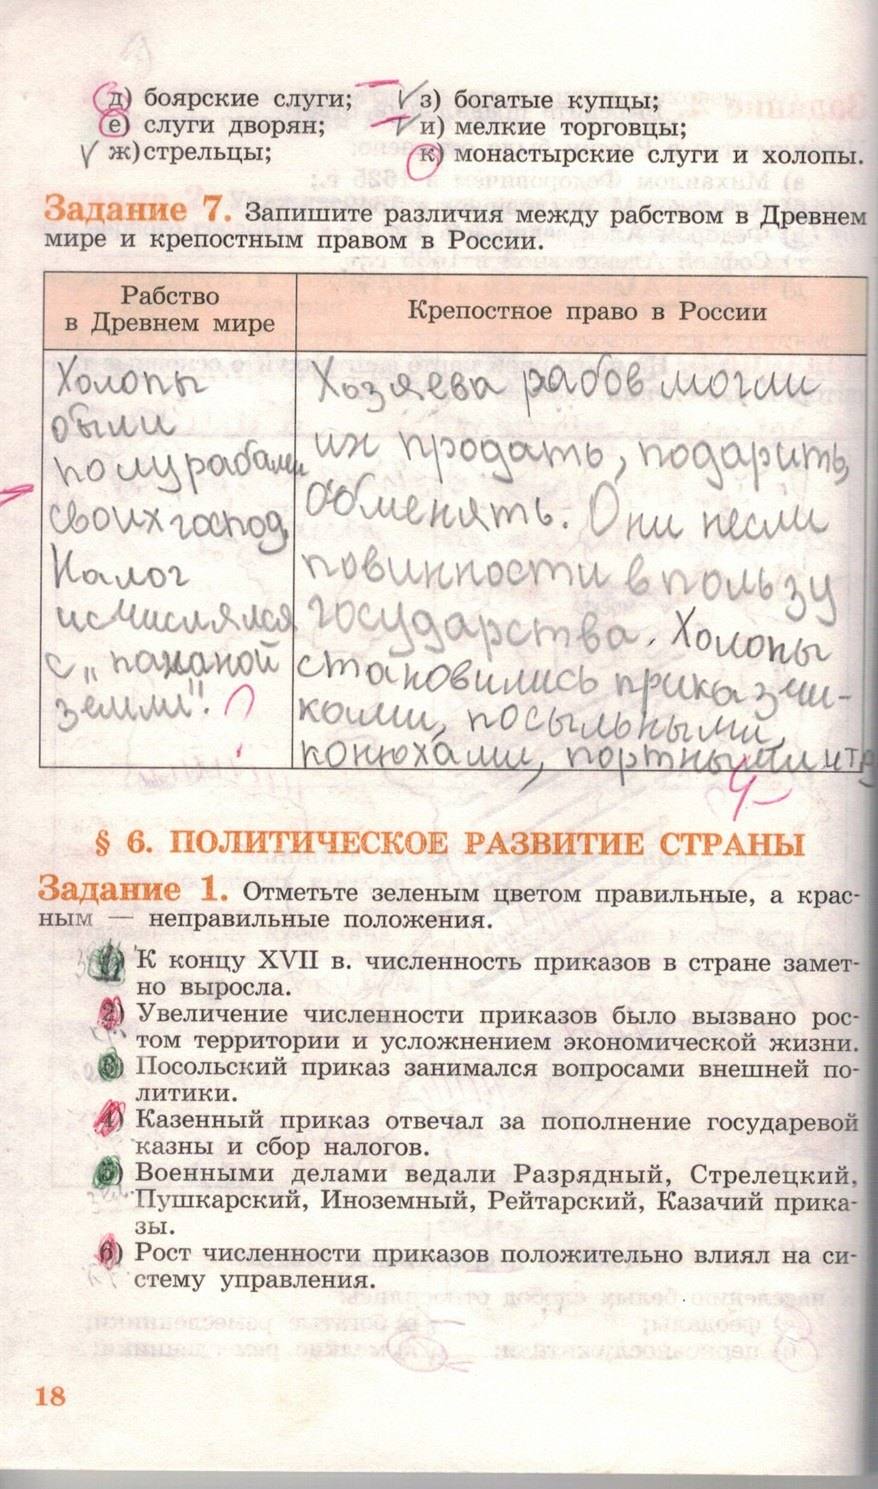 д) боярские слуги;
е) слуги дворян;
ж) стрельцы;
з) богатые купцы;
и) мелкие торговцы;
к) монастырские слуги и холопы.
Задание 7. Запишите различия между рабством в Древнем
мире и крепостным правом в России.
Рабство
в Древнем мире
Крепостное право в России
Холопы
были
полурабами
своих господ.
Налог
исчислялся
с „паханой
земли".
?
Хозяева рабов могли
их продать, подарить,
обменять. Они несли
повинности в пользу
государства. Холопы
становились приказчи-
ками, посыльными,
конюхами, портными и тд
4-
§ 6. ПОЛИТИЧЕСКОЕ РАЗВИТИЕ СТРАНЫ
Задание 1. Отметьте зеленым цветом правильные, а крас-
ным — неправильные положения.
1) К концу XVII в. численность приказов в стране замет-
но выросла.
2) Увеличение численности приказов было вызвано рос-
том территории и усложнением экономической жизни.
3) Посольский приказ занимался вопросами внешней по-
литики.
4) Казенный приказ отвечал за пополнение государевой
казны и сбор налогов.
5) Военными делами ведали Разрядный, Стрелецкий,
Пушкарский, Иноземный, Рейтарский, Казачий прика-
зы.
6) Рост численности приказов положительно влиял на си-
стему управления.
18